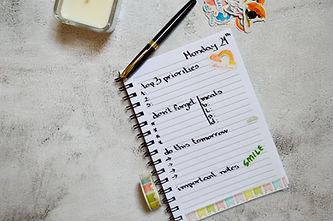 Monday 21th
top 3 priorities
1.
2.
3.
don't forget
meals
B
L
D
do this tomorrow
important notes
SMILE